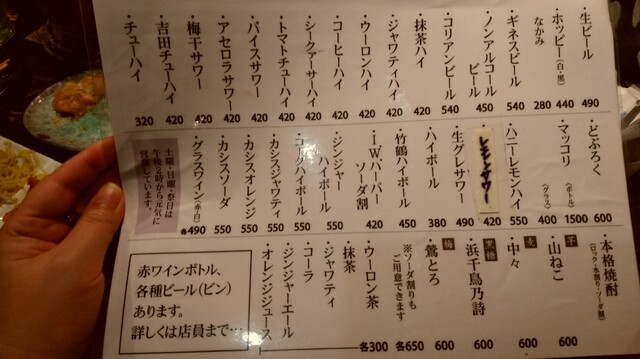 ・生ビール 490
・ホッピー(白・黒) 440
なかみ 280
・ギネスビール 540
・ノンアルコールビール 450
・コリアンビール 540
・抹茶ハイ 420
・ジャワティハイ 420
・ウーロンハイ 420
・コーヒーハイ 420
・シークァーサーハイ 420
・トマトチューハイ 420
・バイスサワー 420
・アセロラサワー 420
・梅干サワー 420
・吉田チューハイ 420
・チューハイ 320
・どぶろく 600
・マッコリ (ボトル) 1500
(グラス) 400
・ハニーレモンハイ 550
・レモンサワー 420
・生グレサワー 490
・ハイボール 380
・竹鶴ハイボール 450
・I.W.ハーパーソーダ割 420
・ジンジャーハイボール
・コークハイボール 550
・カシスジャワティ 550
・カシスオレンジ 550
・カシスソーダ 550
・グラスワイン(赤・白) 各490
土曜・日曜・祭日は
午後2時から元気に
営業しています。
・本格焼酎
(ロック・水割り・ソーダ割)
芋 ・山ねこ 600
麦 ・中々 600
黒糖 ・浜千鳥乃詩 600
梅 ・鶯とろ 600
※ソーダ割りも
ご用意できます 各650
・ウーロン茶 各300
・抹茶
・ジャワティ
・コーラ
・ジンジャーエール
・オレンジジュース
赤ワインボトル、
各種ビール(ビン)
あります。
詳しくは店員まで…